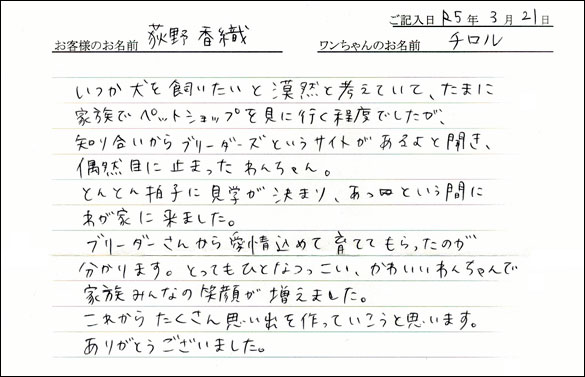 ご記入日 R5年 3月 21日
お客様のお名前 荻野 香織 ワンちゃんのお名前 チロル
いつか犬を飼いたいと漠然と考えていて、たまに
家族でペットショップを見に行く程度でしたが、
知り合いからブリーダーズというサイトがあるよと聞き、
偶然目に止まったわんちゃん。
とんとん拍子に見学が決まり、あっという間に
わが家に来ました。
ブリーダーさんから愛情込めて育ててもらったのが
分かります。とってもひとなつっこい、かわいいわんちゃんで
家族みんなの笑顔が増えました。
これからたくさん思い出を作っていこうと思います。
ありがとうございました。